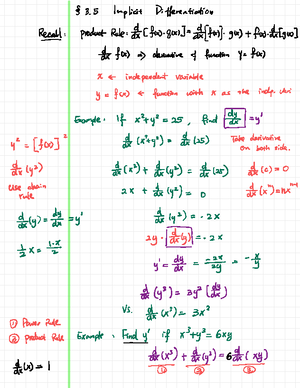 § 3.5 Implicit Differentiation
Recall: product Rule: d/dx [f(x)·g(x)] = d/dx[f(x)]· g(x) + f(x)·d/dx[g(x)]
d/dx f(x) ⇒ derivative of function y = f(x)
x ← independent variable
y = f(x) ← function with x as the
Example: If x²+y² = 25, find dy/dx = y'
d/dx (x²+y²) = d/dx (25)
Take derivative
on both side.
y² = [f(x)]²
d/dx (y²)
use chain
rule
d/dx (x²) + d/dx (y²) = d/dx (25)
d/dx (c) = 0
2x + d/dx (y²) = 0
d/dx (xⁿ) = nxⁿ⁻¹
d/dx (y) = dy/dx = y'
d/dx (y²) = -2x
½ x = 1·x/2
2y · d/dx(y) = -2x
y' = dy/dx = -2x/2y = -x/y
d/dx (y³) = 3y² (dy/dx)
vs. d/dx (x³) = 3x²
① Power Rule
② product Rule
Example: Find y' if x³+y³ = 6xy
d/dx (x³) + d/dx (y³) = 6 d/dx (xy)
① ① ②
d/dx (x) = 1